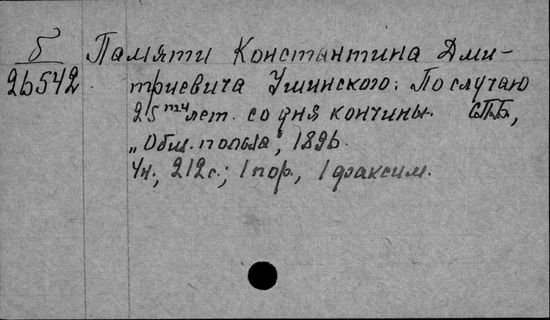 б Памяти Константина Дми-
26542 триевича Ушинского: По случаю
25тилет. со дня кончины. СПБ,
„Общ. польза", 1896.
4н., 212с.; 1 пор., 1 факсим.